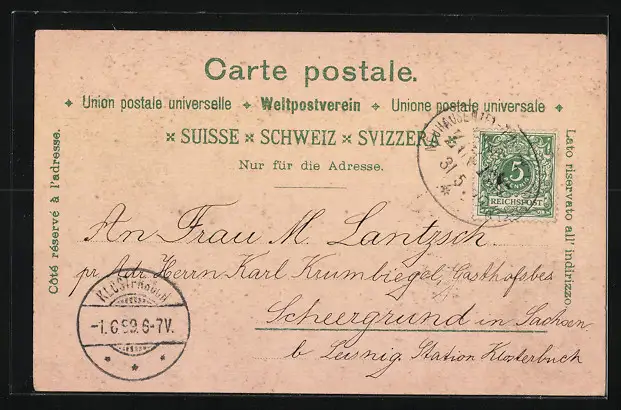 Carte postale.
Union postale universelle ✦ Weltpostverein ✦ Unione postale universale
× SUISSE × SCHWEIZ × SVIZZERA
Nur für die Adresse.
Côté réservé à l'adresse.
Lato riservato all' indirizzo.
31 5
5
REICHSPOST
An Frau M. Lantzsch
pr. Adr. Herrn Karl Krumbiegel, Gasthofsbes
Scheergrund in Sachsen
b Leisnig Station Klosterbuch
KLOSTERBUCH
-1.6.99.6-7V.